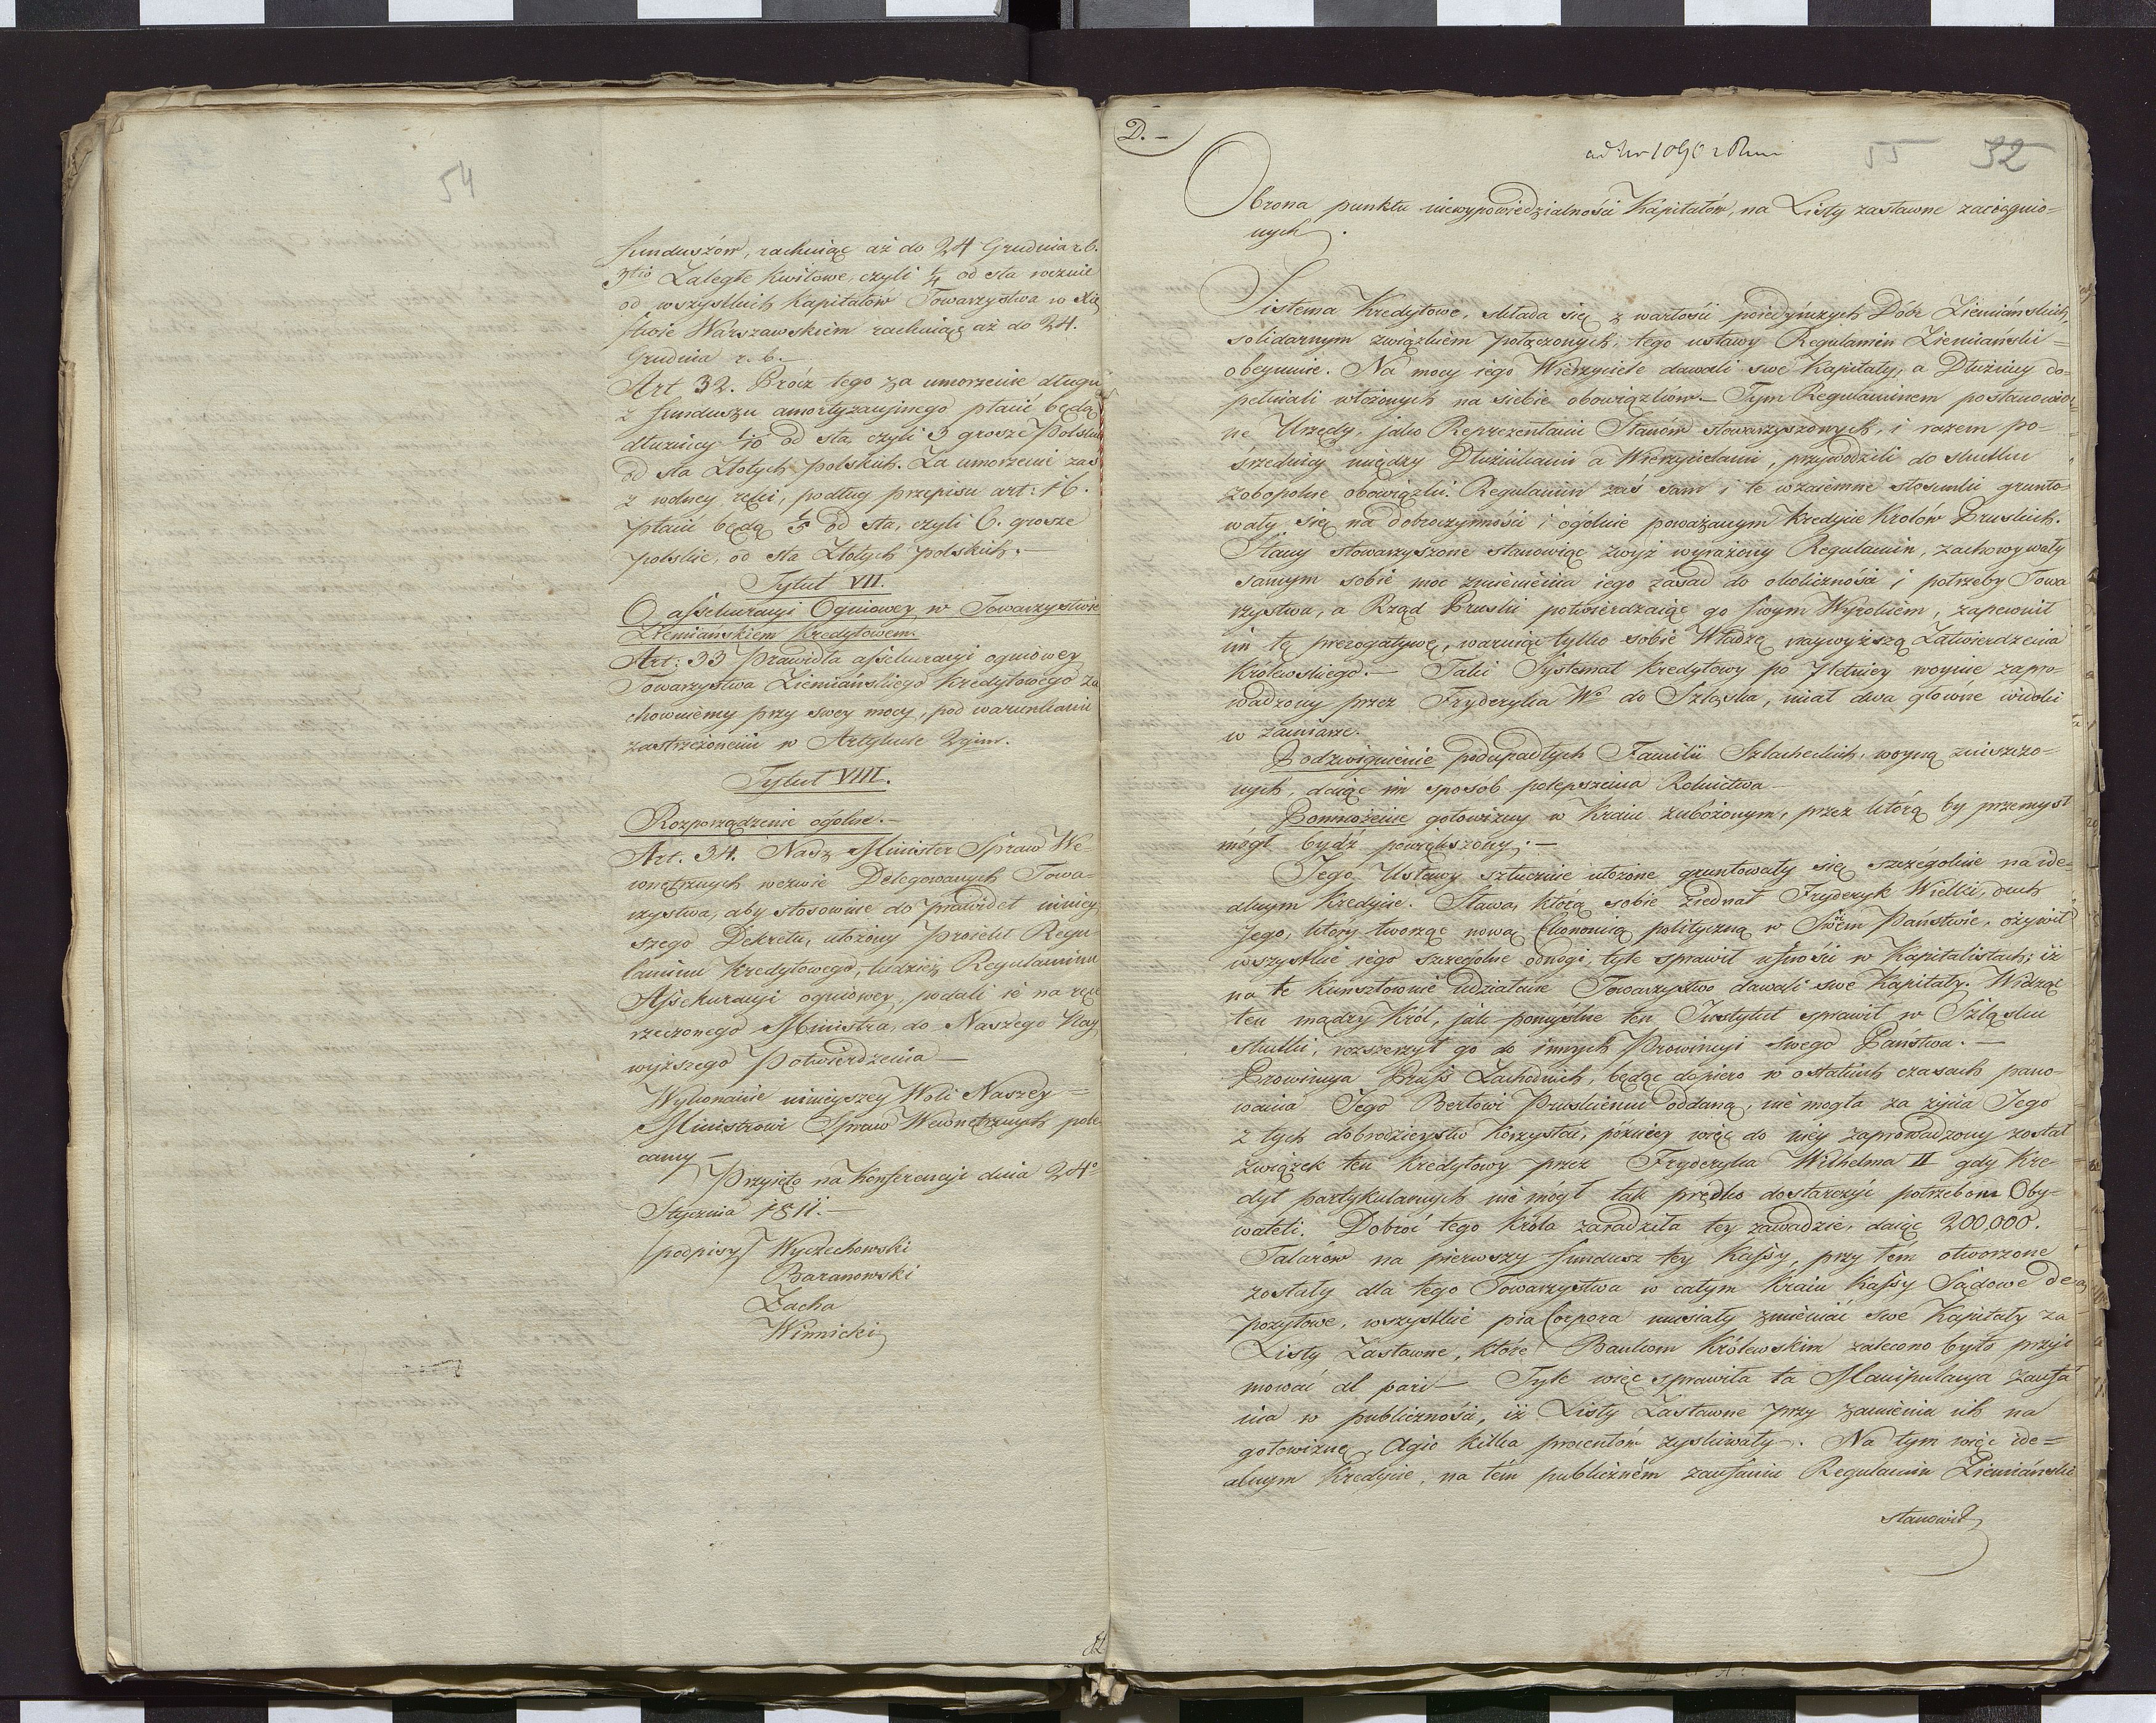 54
funduszów, rachuiąc aż do 24 Grudnia r. b.
3tio Zaległe kwitowe, czyli 1/4 od sta rocznie
od wszystkich Kapitałów Towarzystwa w Xię
stwie Warszawskiem rachuiąc aż do 24.
Grudnia r. b.—
Art 32. Prócz tego za umorzenie długu
z funduszu amortyzacyjnego płacić będą
dłużnicy 1/10 od sta, czyli 3 grosze Polskie
od sta Złotych polskich. Za umorzenie zaś
z wolney ręki, podług przepisu art: 16.
płacić będą 1/5 od sta, czyli 6. grosze
polskie, od sta Złotych polskich.—
Tytuł VII.
O assekuracyi Ogniowey w Towarzystwie
Ziemiańskiem Kredytowem.
Art: 33 Prawidła assekuracyi ogniowey
Towarzystwa Ziemiańskiego Kredytowego za
chowuiemy przy swey mocy, pod warunkami
zastrzeżonemi w Artykule 2gim.
Tytuł VIII.
Rozporządzenie ogólne.—
Art. 34. Nasz Minister Spraw We-
wnętrznych wezwie Delegowanych Towa-
rzystwa, aby stosownie do prawideł niniey
szego Dekretu, ułożony Proiekt Regu-
laminu Kredytowego, tudzież Regulaminu
Assekuracyi ogniowey, podali ie na ręce
rzeczonego Ministra, do Naszego Nay
wyższego Potwierdzenia—
Wykonanie ninieyszey Woli Naszey=
Ministrowi Spraw Wewnętrznych pole
camy—
Przyięto na Konferencyi dnia 24o
Stycznia 1811.—
(podpisy) Wyczechowski
Baranowski
Zacha
Winnicki
D.—
55 32
Obrona punktu niewypowiedzialności Kapitałów, na Listy zastawne zaciągnio-
nych.
Sistema Kredytowe, składa się z wartości poiedyńczych Dóbr Ziemiańskich,
solidarnym związkiem połączonych; tego ustawy Regulamin Ziemiański=
obeymuie. Na mocy iego Wierzyciele dawali swe Kapitały, a Dłużnicy do-
pełniali włożonych na siebie obowiązków.— Tym Regulaminem postanowio-
ne Urzędy, jako Reprezentanci Stanów stowarzyszonych, i razem po-
średnicy między Dłużnikami a Wierzycielami, przywodzili do skutku
zobopolne obowiązki. Regulamin zaś sam i te wzaiemne stosunki grunto
wały się na dobroczynności i ogólnie poważanym Kredycie Królów Pruskich.
Stany stowarzyszone stanowiąc zwyż wyrażony Regulamin, zachowywały
samym sobie moc zmienienia iego zasad do okoliczności i potrzeby Towa
rzystwa, a Rząd Pruski potwierdzaiąc go swym Wyrokiem, zapewnił
im tę prerogatywę, waruiąc tylko sobie Władzę naywyższą Zatwierdzenia
Królewskiego.— Taki Systemat Kredytowy po 7letniey woynie zapro-
wadzony przez Fryderyka Wo do Szląska, miał dwa główne widoki
w zamiarze.
Podzwignienie podupadłych Familii Szlacheckich, woyną zniszczo-
nych, daiąc im sposób polepszenia Rolnictwa—
Pomnożenie gotowizny w Kraiu zubożonym, przez którą by przemysł
mógł bydź powiększony.—
Jego Ustawy sztucznie ułożone gruntowały się szczególnie na ide-
alnym Kredycie. Sława, którą sobie ziednał Fryderyk Wielki, duch
Jego, który tworząc nową Ekonomią polityczną w Swoiem Państwie, ożywił
wszystkie iego szczególne odnogi, tyle sprawił ufności w Kapitalistach; iż
na te kunsztownie udziałane Towarzystwo dawali swe Kapitały. Widząc
ten mądry Król, jak pomyślne ten Instytut sprawił w Szląsku
skutki, rozszerzył go do innych Prowincyi swego Państwa.—
Prowincya Pruss Zachodnich, będąc dopiero w ostatnich czasach pano-
wania Jego Berłowi Pruskiemu oddaną, nie mogła za życia Jego
z tych dobrodzieystw korzystać, późniey więc do niey zaprowadzony został
związek ten Kredytowy przez Fryderyka Wilhelma II gdy Kre-
dyt partykularnych nie mógł tak prędko dostarczyć potrzebom Oby-
wateli. Dobroć tego Króla zaradziła tey zawadzie, daiąc 200,000.
Talarów na pierwszy fundusz tey Kassy, przy tém otworzone
zostały dla tego Towarzystwa w całym Kraiu Kassy Sądowe de
pozytowe, wszystkie pia Corpora musiały zmieniać swe Kapitały za
Listy Zastawne, które Bankom Królewskim zalecono było przyi
mować al pari— Tyle więc sprawiła ta Manipulacya zaufa
nia w publiczności, iż Listy Zastawne przy zamienieniu ich na
gotowiznę, Agio kilka procentów zyskiwały. Na tym więc ide=
alnym Kredycie, na tém publiczném zaufaniu Regulamin Ziemiański
stanowił